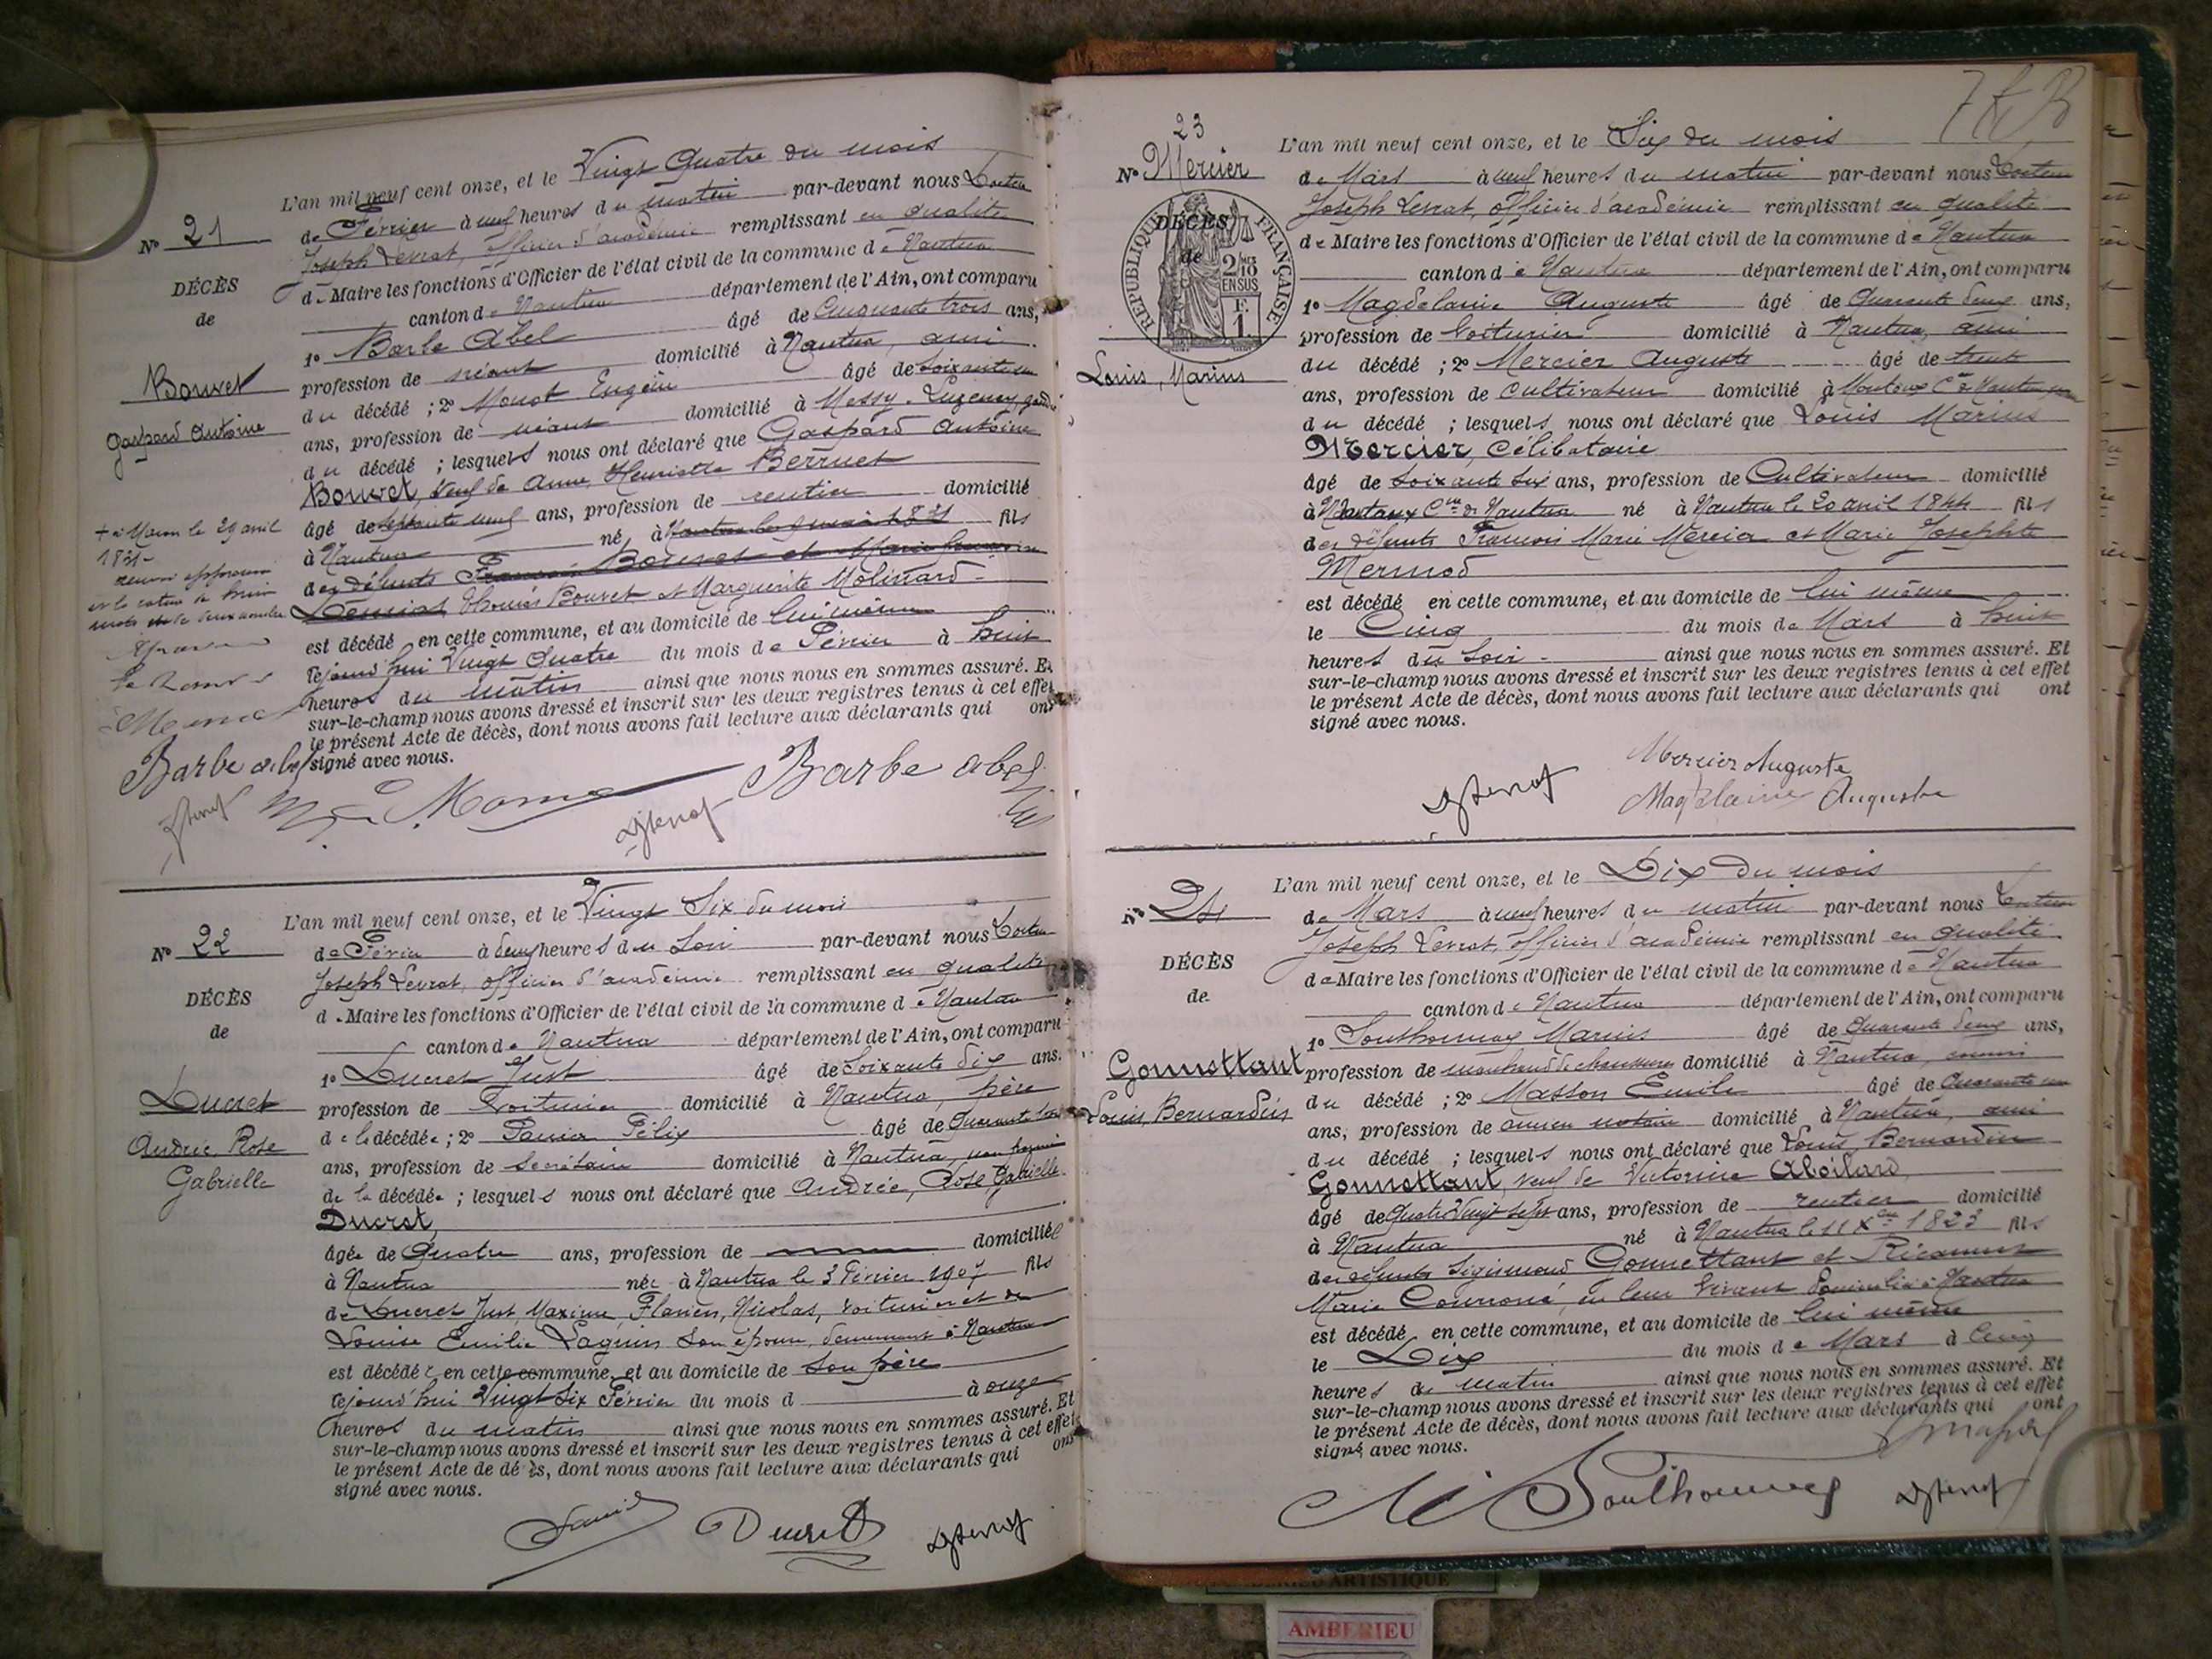 L'an mil neuf cent onze, et le Vingt Quatre du mois
de Février à neuf heures du matin par-devant nous Docteur
Joseph Levrat, officier d'académie remplissant en qualité
de Maire les fonctions d'Officier de l'état civil de la commune de Nantua
canton de Nantua département de l'Ain, ont comparu
1º Barbe Abel âgé de Cinquante trois ans,
profession de néant domicilié à Nantua, ami
du décédé ; 2º Monot Eugène âgé de soixante
ans, profession de néant domicilié à Messy
du décédé ; lesquels nous ont déclaré que Gaspard Antoine
Bouvet, veuf de Anne Henriette Berruet
âgé de septante neuf ans, profession de rentier domicilié
à Nantua né à fils
des défunts François Bouvet et Marie
Thomés Bouvet et Marguerite Molinard
est décédé en cette commune, et au domicile de lui même
cejourd'hui Vingt Quatre du mois de Février à huit
heures du matin ainsi que nous nous en sommes assuré. Et
sur-le-champ nous avons dressé et inscrit sur les deux registres tenus à cet effet
le présent Acte de décès, dont nous avons fait lecture aux déclarants qui ont
signé avec nous.
Nº 21
DÉCÈS
de
Bouvet
Gaspard Antoine
Barbe abel
Barbe abel
L'an mil neuf cent onze, et le Vingt Six du mois
de Février à deux heures du Soir par-devant nous Docteur
Joseph Levrat, officier d'académie remplissant en qualité
de Maire les fonctions d'Officier de l'état civil de la commune de Nantua
canton de Nantua département de l'Ain, ont comparu
1º Ducret Just âgé de Soixante dix ans,
profession de Voiturier domicilié à Nantua, père
de la décédée ; 2º Panier Félix âgé de Quarante
ans, profession de Secrétaire domicilié à Nantua, non parent
de la décédée ; lesquels nous ont déclaré que Andrée, Rose Gabrielle
Ducret,
âgée de Quatre ans, profession de domiciliée
à Nantua née à Nantua le 3 Février 1907 fils
de Ducret Just, Maxime, Flavien, Nicolas, voiturier et de
Louise Emilie Laguin son épouse, demeurant à Nantua
est décédée en cette commune, et au domicile de son père
cejourd'hui Vingt Six Février du mois d à onze
heures du matin ainsi que nous nous en sommes assuré. Et
sur-le-champ nous avons dressé et inscrit sur les deux registres tenus à cet effet
le présent Acte de décès, dont nous avons fait lecture aux déclarants qui ont
signé avec nous.
Nº 22
DÉCÈS
de
Ducret
Andrée Rose
Gabrielle
Ducret
L'an mil neuf cent onze, et le Six du mois
de Mars à neuf heures du matin par-devant nous Docteur
Joseph Levrat, officier d'académie remplissant en qualité
de Maire les fonctions d'Officier de l'état civil de la commune de Nantua
canton de Nantua département de l'Ain, ont comparu
1º Magdelaine Auguste âgé de Quarante deux ans,
profession de Voiturier domicilié à Nantua, ami
du décédé ; 2º Mercier Auguste âgé de trente
ans, profession de Cultivateur domicilié à
du décédé ; lesquels nous ont déclaré que Louis Marius
Mercier, Célibataire
âgé de Soixante Six ans, profession de Cultivateur domicilié
à Montoux Cne de Nantua né à Nantua le 20 avril 1844 fils
des défunts François Marie Mercier et Marie Josephte
Mermod
est décédé en cette commune, et au domicile de lui même
le Cinq du mois de Mars à huit
heures du Soir ainsi que nous nous en sommes assuré. Et
sur-le-champ nous avons dressé et inscrit sur les deux registres tenus à cet effet
le présent Acte de décès, dont nous avons fait lecture aux déclarants qui ont
signé avec nous.
23
Nº Mercier
DÉCÈS
de
RÉPUBLIQUE FRANÇAISE
2/10 EN SUS
F. 1
Louis, Marius
Mercier Auguste
Magdelaine Auguste
L'an mil neuf cent onze, et le Dix du mois
de Mars à neuf heures du matin par-devant nous Docteur
Joseph Levrat, officier d'académie remplissant en qualité
de Maire les fonctions d'Officier de l'état civil de la commune de Nantua
canton de Nantua département de l'Ain, ont comparu
1º Southonnax Marius âgé de Quarante deux ans,
profession de marchand de chaussures domicilié à Nantua, ami
du décédé ; 2º Masson Emile âgé de Quarante un
ans, profession de ancien notaire domicilié à Nantua, ami
du décédé ; lesquels nous ont déclaré que Louis Bernardin
Gonnettant, veuf de Victorine Abeilard
âgé de Quatre Vingt sept ans, profession de rentier domicilié
à Nantua né à Nantua le 11 Xbre 1823 fils
des défunts Sigismond Gonnettant et
Marie Couronné, en leur vivant domiciliés à Nantua
est décédé en cette commune, et au domicile de lui même
le Dix du mois de Mars à Cinq
heures du matin ainsi que nous nous en sommes assuré. Et
sur-le-champ nous avons dressé et inscrit sur les deux registres tenus à cet effet
le présent Acte de décès, dont nous avons fait lecture aux déclarants qui ont
signé avec nous.
Nº 24
DÉCÈS
de
Gonnettant
Louis, Bernardin
AMBERIEU